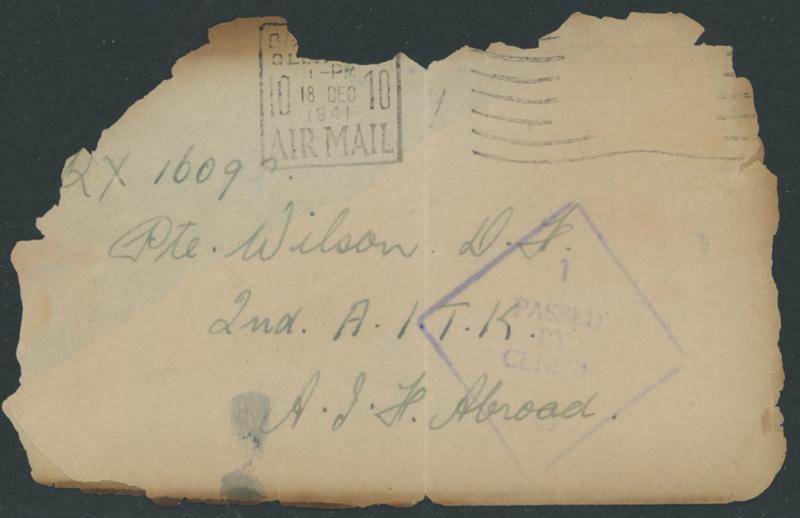 1-PM
10 18 DEC 10
1941
AIR MAIL
QX 1609
Pte. Wilson. D. F.
2nd. A. I. T. K.
A. I. F. Abroad.
1
PASSED
BY
CENSOR